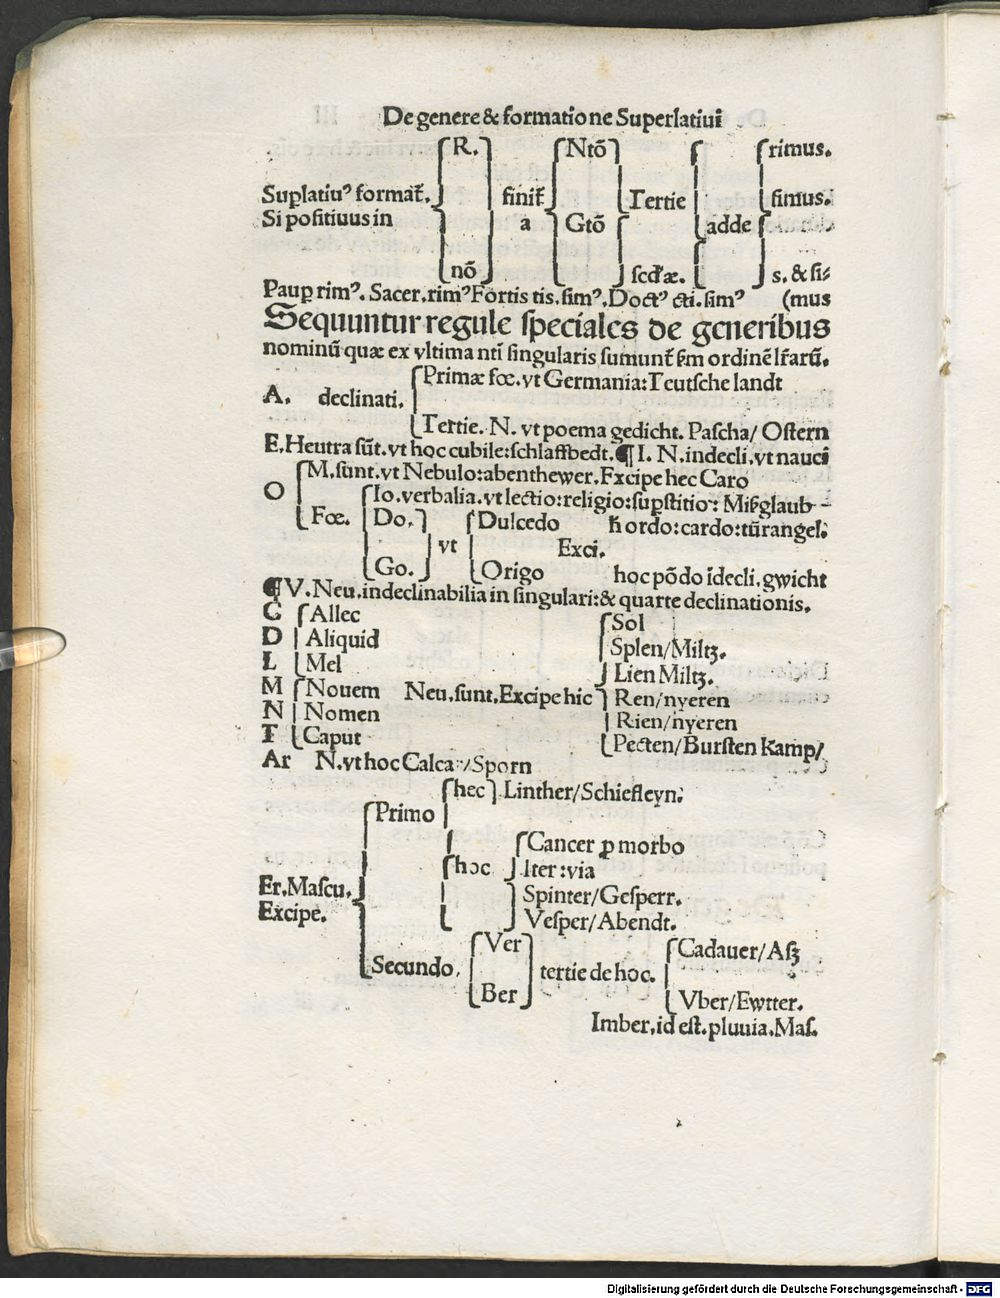 De genere & formatione Superlatiui
R. Ntō rimus.
Suꝑlatiuꝰ format̄. finit̄ Tertie simus.
Si positiuus in a Gtō adde
nō scd'æ. s. & si-
Pauꝑ rimꝰ. Sacer, rimꝰ Fortis tis, simꝰ, Doctꝰ cti. simꝰ (mus
Sequuntur regule speciales de generibus
nominū quæ ex vltima nti singularis sumunt̄ ordinē lr̄arū.
Primæ fœ. vt Germania: Teutsche landt
A. declinati.
Tertie. N. vt poema gedicht. Pascha/ Ostern
E. Heutra sūt. vt hoc cubile: schlaffbedt. ¶ I. N. indecli, vt nauci
M. sunt. vt Nebulo: abenthewer. Excipe hec Caro
O Io. verbalia. vt lectio: religio: suꝑstitio: Mißglaub-
Fœ. Do. Dulcedo ordo: cardo: tūrangel.
vt Exci.
Go. Origo hoc pōdo īdecli, gwicht
¶ V. Neu, indeclinabilia in singulari: & quarte declinationis.
C Allec Sol
D Aliquid Splen/Miltz.
L Mel Lien Miltz.
M Nouem Neu, sunt, Excipe hic Ren/nyeren
N Nomen Rien/nyeren
T Caput Pecten/Bursten Kamp/
Ar N. vt hoc Calcar/Sporn
hec Linther/Schieffleyn.
Primo
Cancer ꝑ morbo
hoc Iter: via
Er. Mascu. Spinter/Gesperr.
Excipe. Vesper/Abendt.
Ver Cadauer/Aſz
Secundo, tertie de hoc.
Ber Vber/Ewtter.
Imber, id est. pluuia. Mas.
Digitalisierung gefördert durch die Deutsche Forschungsgemeinschaft - DFG